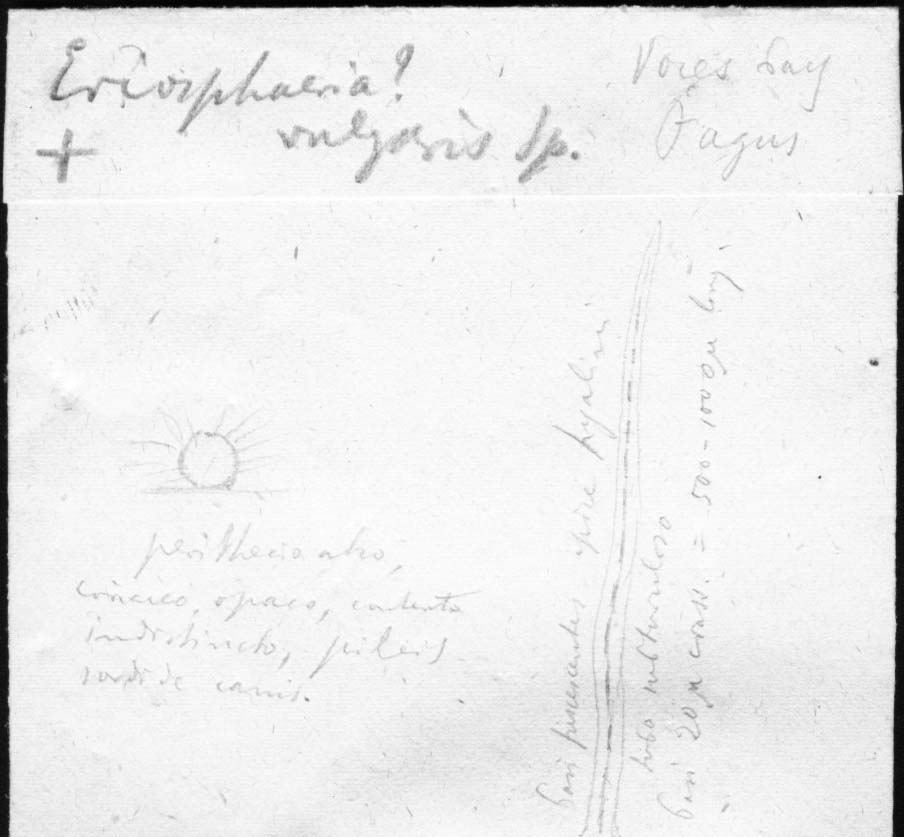 Eriosphaeria?
+ vulgaris Sp.
Fagus
perithecio atro,
coriaceo, opaco, contento
indistincto, pileis
sordide canis.
basi fuscescentes apice hyalin
tubo subturuloso
basi 20 µ crass. = 500-1000 µ long.